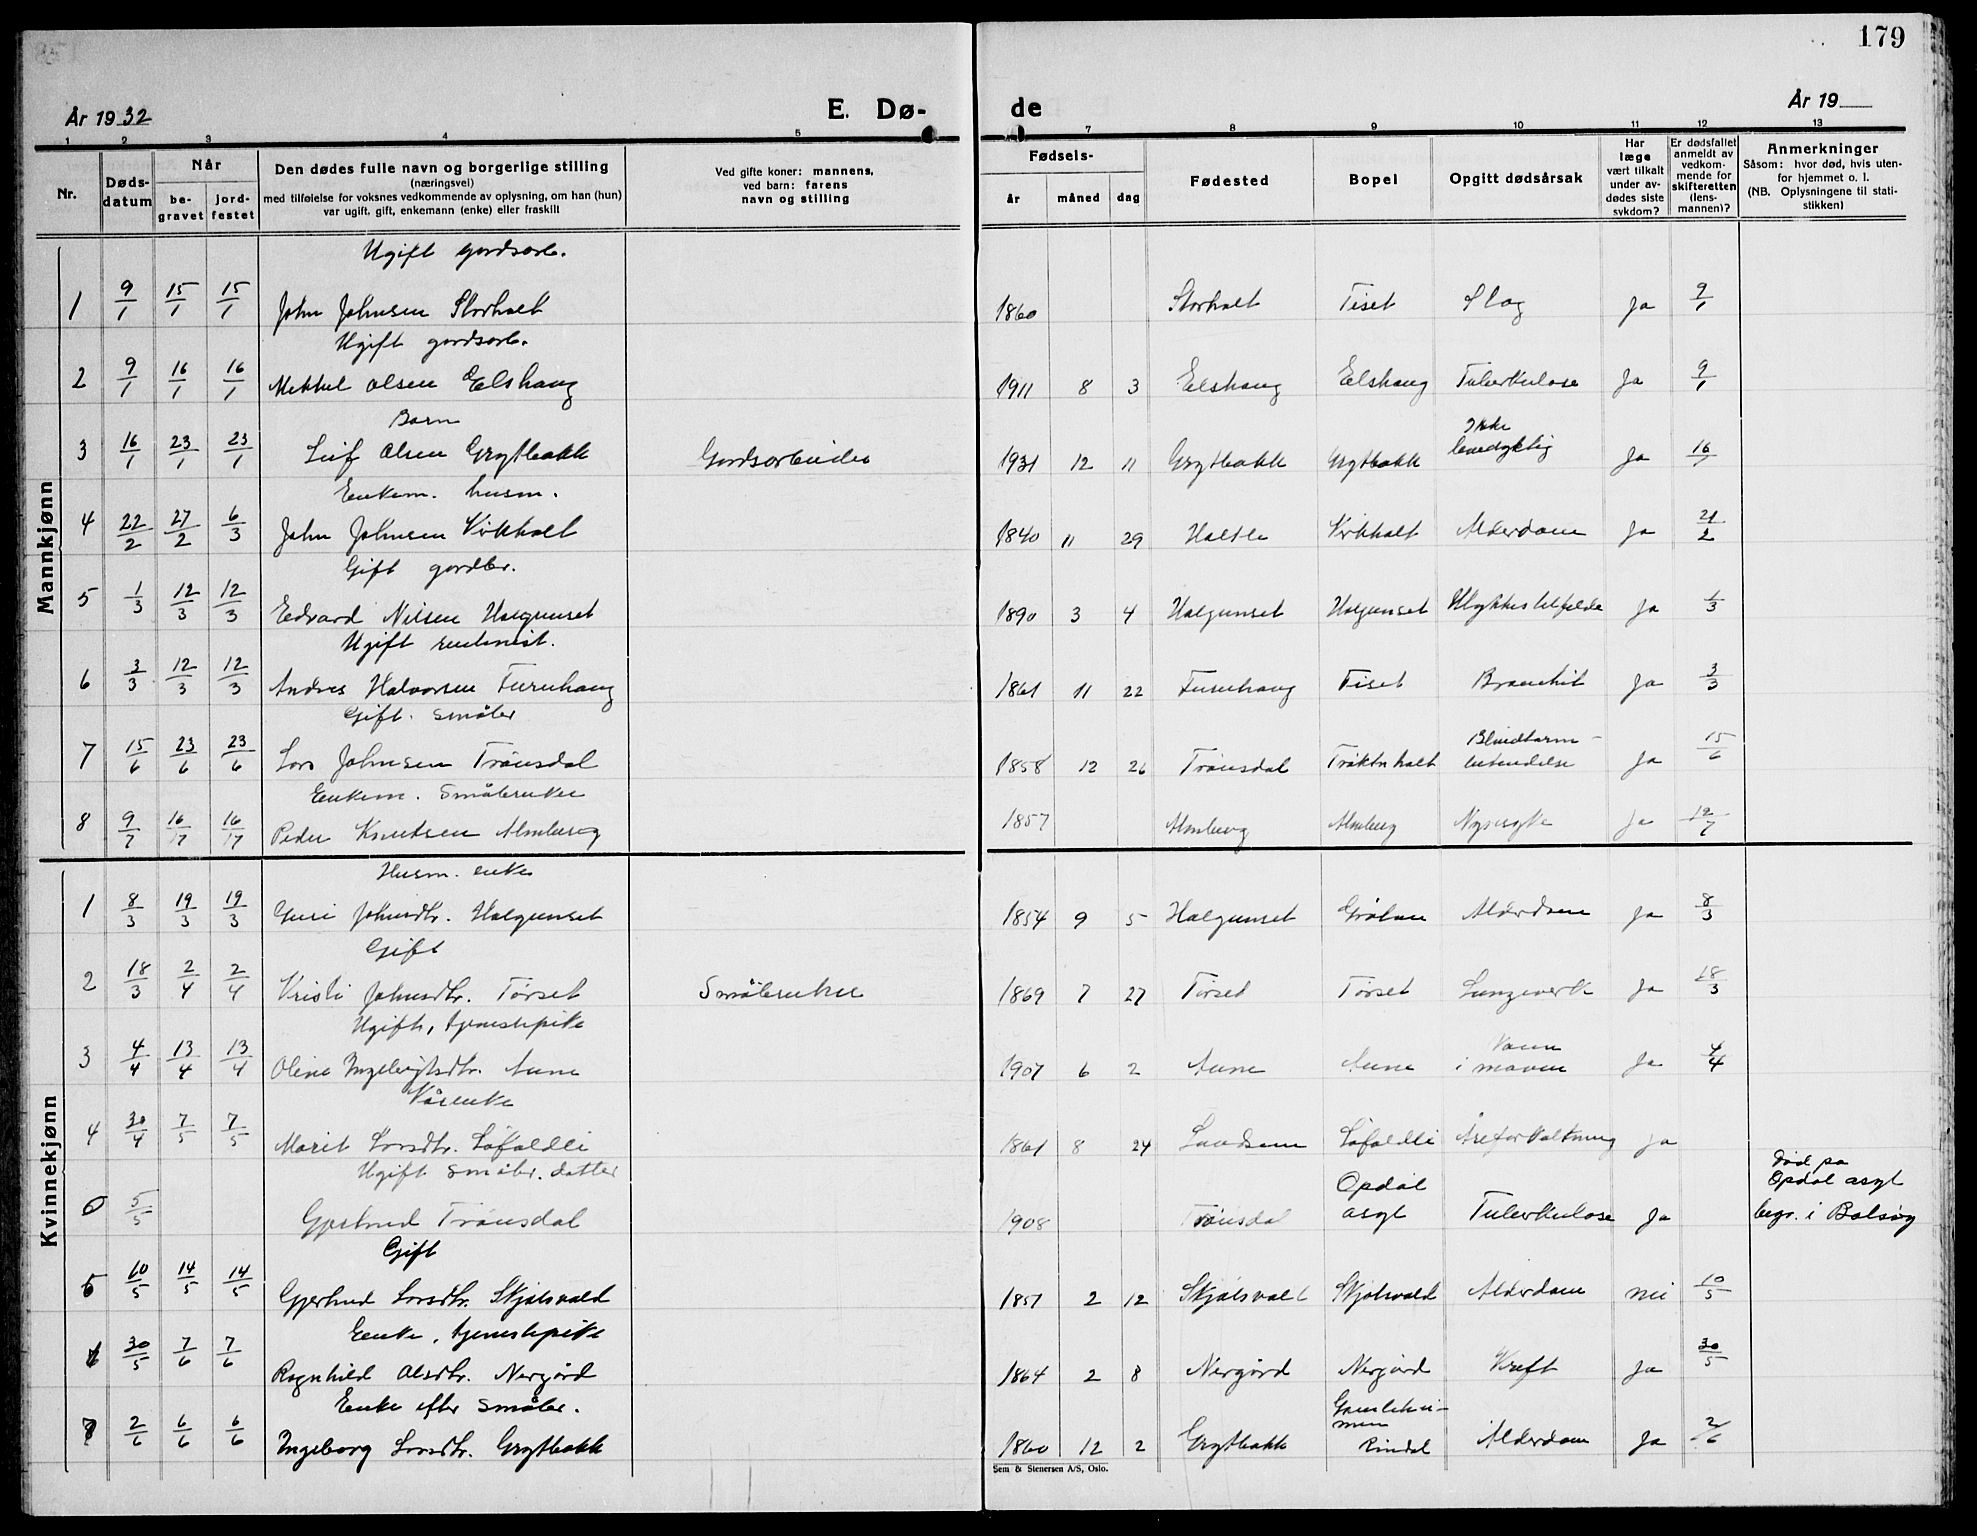 179
År 1932
E. Dø-
de
År 19
1 2 3 4 5
7 8 9 10 11 12 13
Nr.
Døds-
datum
Når
be-
gravet
jord-
festet
Den dødes fulle navn og borgerlige stilling
(næringsvei)
med tilføielse for voksnes vedkommende av oplysning, om han (hun)
var ugift, gift, enkemann (enke) eller fraskilt
Ved gifte koner: mannens,
ved barn: farens
navn og stilling
Fødsels-
år måned dag
Fødested
Bopel
Opgitt dødsårsak
Har
læge
vært tilkalt
under av-
dødes siste
sykdom?
Er dødsfallet
anmeldt av
vedkom-
mende for
skifteretten
(lens-
mannen)?
Anmerkninger
Såsom: hvor død, hvis uten-
for hjemmet o. l.
(NB. Oplysningene til stati-
stikken)
Mannkjønn
Ugift gardsarb.
1 9/1 15/1 15/1 John Johnsen Storholt 1860 Storholt Tiset Slag Ja 9/1
Ugift gardsarb.
2 9/1 16/1 16/1 Mekkel Olsen Elshaug 1911 8 3 Elshaug Elshaug Tuberkulose Ja 9/1
Barn
Ikke
3 16/1 23/1 23/1 Leif Olsen Grytbakk Gardsarbeider 1931 12 11 Grytbakk Grytbakk levedyktig Ja 16/1
Enkem. husm.
4 22/2 27/2 6/3 John Johnsen Virkholt 1840 11 29 Haltli Virkholt Alderdom Ja 21/2
Gift gardbr.
5 1/3 12/3 12/3 Edvard Nilsen Halgunset 1890 3 4 Halgunset Halgunset Ulykkestilfelde Ja 1/3
Ugift rentenist.
6 3/3 12/3 12/3 Andres Halvorsen Furuhaug 1861 11 22 Furuhaug Tiset Bronchit Ja 3/3
Gift. småbr
Blindtarm-
7 15/6 23/6 23/6 Lars Johnsen Trønsdal 1858 12 26 Trønsdal betendelse Ja 15/6
Enkem. Småbruker
8 9/7 16/17 16/17 Peder Knutsen Almberg 1857 Almberg Almberg Nyresyke Ja 12/7
Kvinnekjønn
Husm. enke
1 8/3 19/3 19/3 Guri Johnsdtr. Halgunset 1854 9 5 Halgunset Alderdom Ja 8/3
Gift
2 18/3 2/4 2/4 Kristi Johnsdtr. Tørset Småbruker 1869 7 27 Tørset Tørset Ja 18/3
Ugift, tjenestepike
Vann
3 4/4 13/4 13/4 Oline Ingebrigtsdtr. Aune 1907 6 2 Aune Aune i maven Ja 4/4
Kårenke
4 30/4 7/5 7/5 Marit Larsdtr. Løfaldli 1861 8 24 Landsem Løfaldli Åreforkalkning Ja
Ugift småbr. datter
Død på
Opdal
Opdal asyl
0 5/5 Gjertrud Trønsdal 1908 Trønsdal asyl Tuberkulose Ja begr. i Bolsøy
Gift
5 10/5 14/5 14/5 Gjertrud Larsdtr. Skjølsvold 1857 2 12 Skjølsvold Skjølsvold Alderdom nei 10/5
Enke, tjenestepike
6 30/5 7/6 7/6 Ragnhild Olsdtr. Nergård 1864 2 8 Nergård Nergård Kreft Ja 30/5
Enke efter småbr.
Gamlehei-
men
7 2/6 6/6 6/6 Ingeborg Larsdtr. Grytbakk 1860 12 2 Grytbakk Rindal Alderdom Ja 2/6
Sem & Stenersen A/S, Oslo.